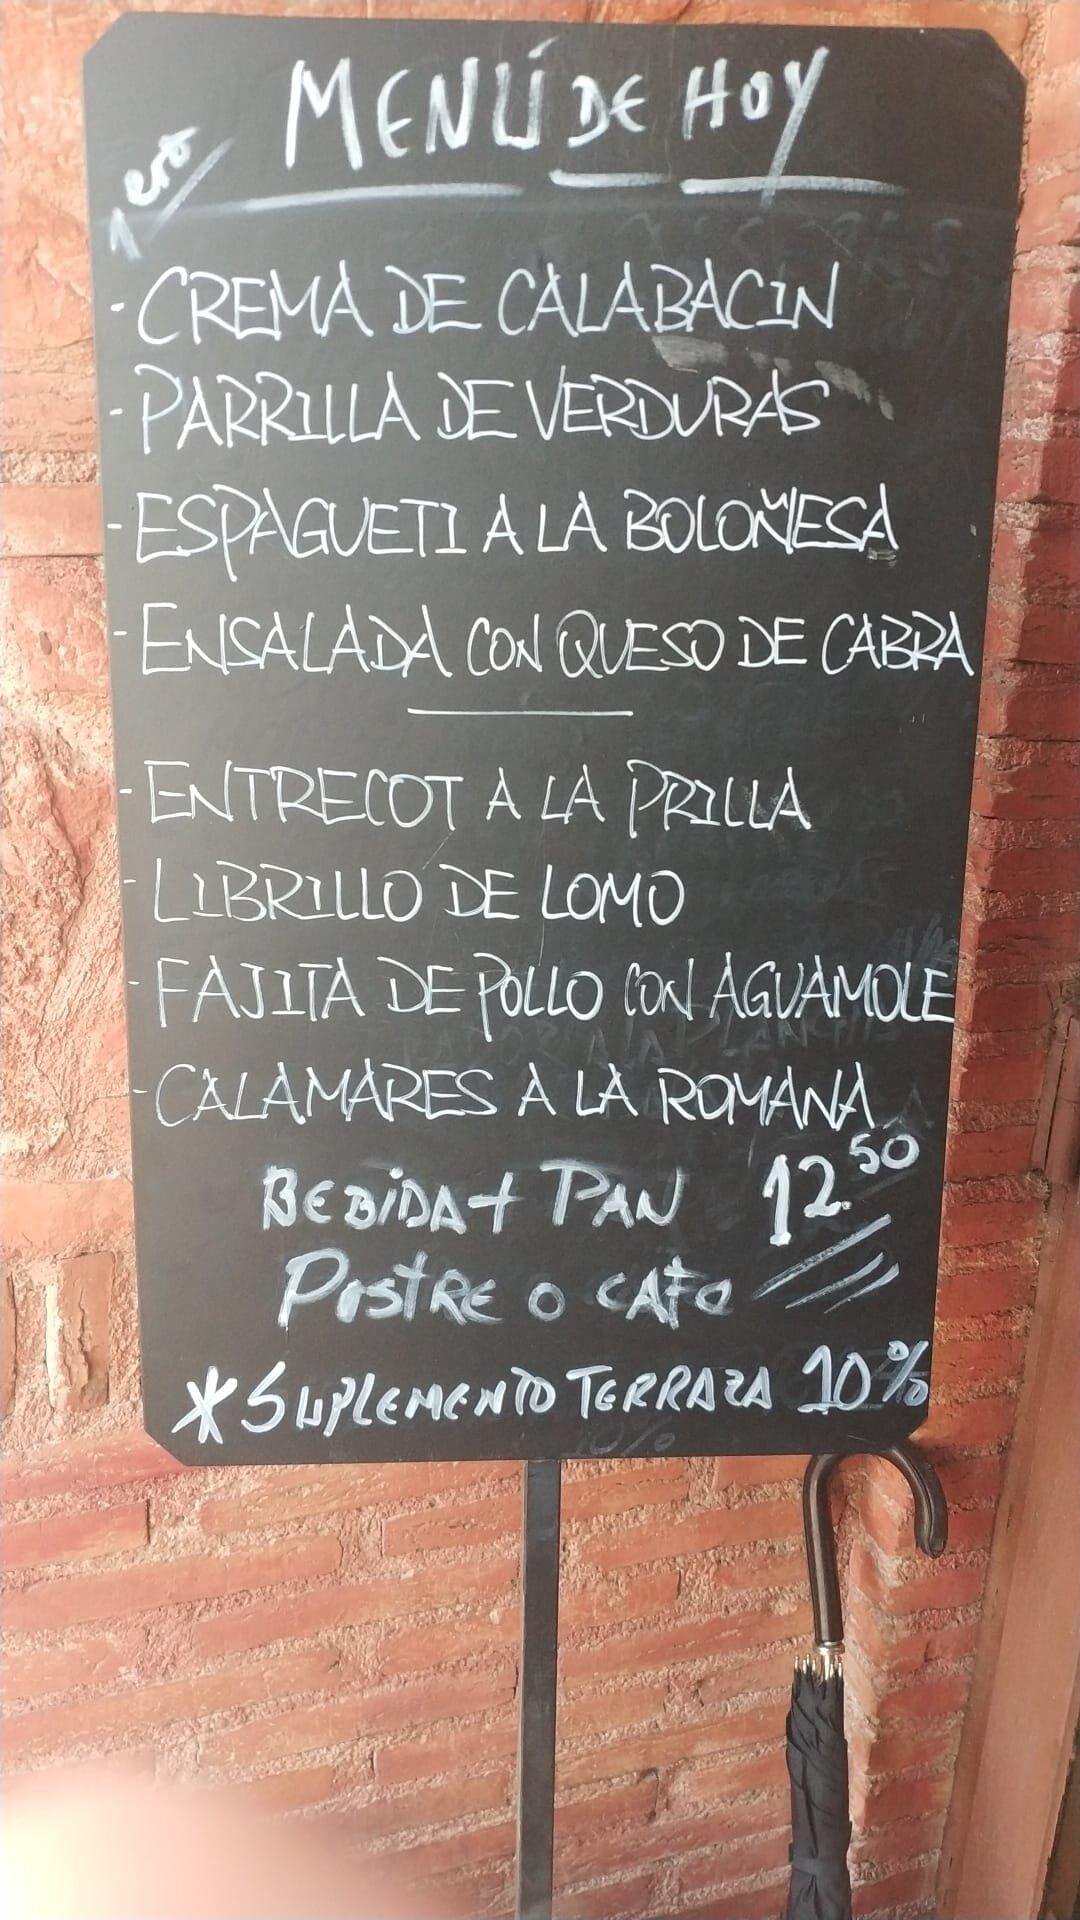 MENÚ DE HOY
1ero
- CREMA DE CALABACIN
- PARRILLA DE VERDURAS
- ESPAGUETI A LA BOLOÑESA
- ENSALADA CON QUESO DE CABRA
- ENTRECOT A LA PRILLA
- LIBRILLO DE LOMO
- FAJITA DE POLLO CON AGUAMOLE
- CALAMARES A LA ROMANA
BEBIDA + PAN 12.50
POSTRE O CAFE
* SUPLEMENTO TERRAZA 10%